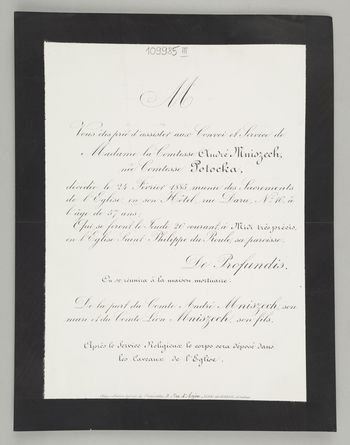 109985 III
M
Vous êtes prié d'assister aux Convoi et Service de
Madame la Comtesse André Mniszech,
née Comtesse Potocka,
décédée le 24 Février 1885 munie des Sacrements
de l'Eglise, en son Hôtel, rue Daru, No 16, à
l'âge de 57 ans;
Qui se feront le Jeudi 26 courant, à Midi très précis,
en l'Eglise Saint Philippe du Roule, sa paroisse.
De Profundis.
On se réunira à la maison mortuaire.
De la part du Comte André Mniszech, son
mari et du Comte Léon Mniszech, son fils.
Après le Service Religieux le corps sera déposé dans
les Caveaux de l'Eglise.